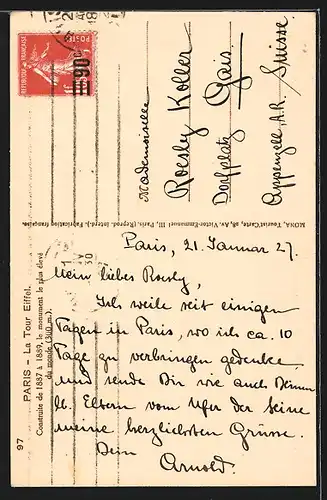 REPUBLIQUE FRANÇAISE
POSTES
90c
Mademoiselle
Roesly Koller
Dorfplatz Gais
Appenzell, A.R. Suisse
MONA, Tourist-Carte, 28, Av. Victor-Emmanuel III, Paris (Reprod. Interd.). Fabrication française.
97 PARIS – La Tour Eiffel.
Construite de 1887 à 1889, le monument le plus élevé
du monde (300 m.)
Paris, 21. Januar 27.
Mein liebes Roesly,
Ich weile seit einigen
Tagen in Paris, wo ich ca. 10
Tage zu verbringen gedenke
und sende Dir wie auch Deinen
lb. Eltern vom Ufer der Seine
meine herzlichsten Grüsse.
Dein
Arnold.